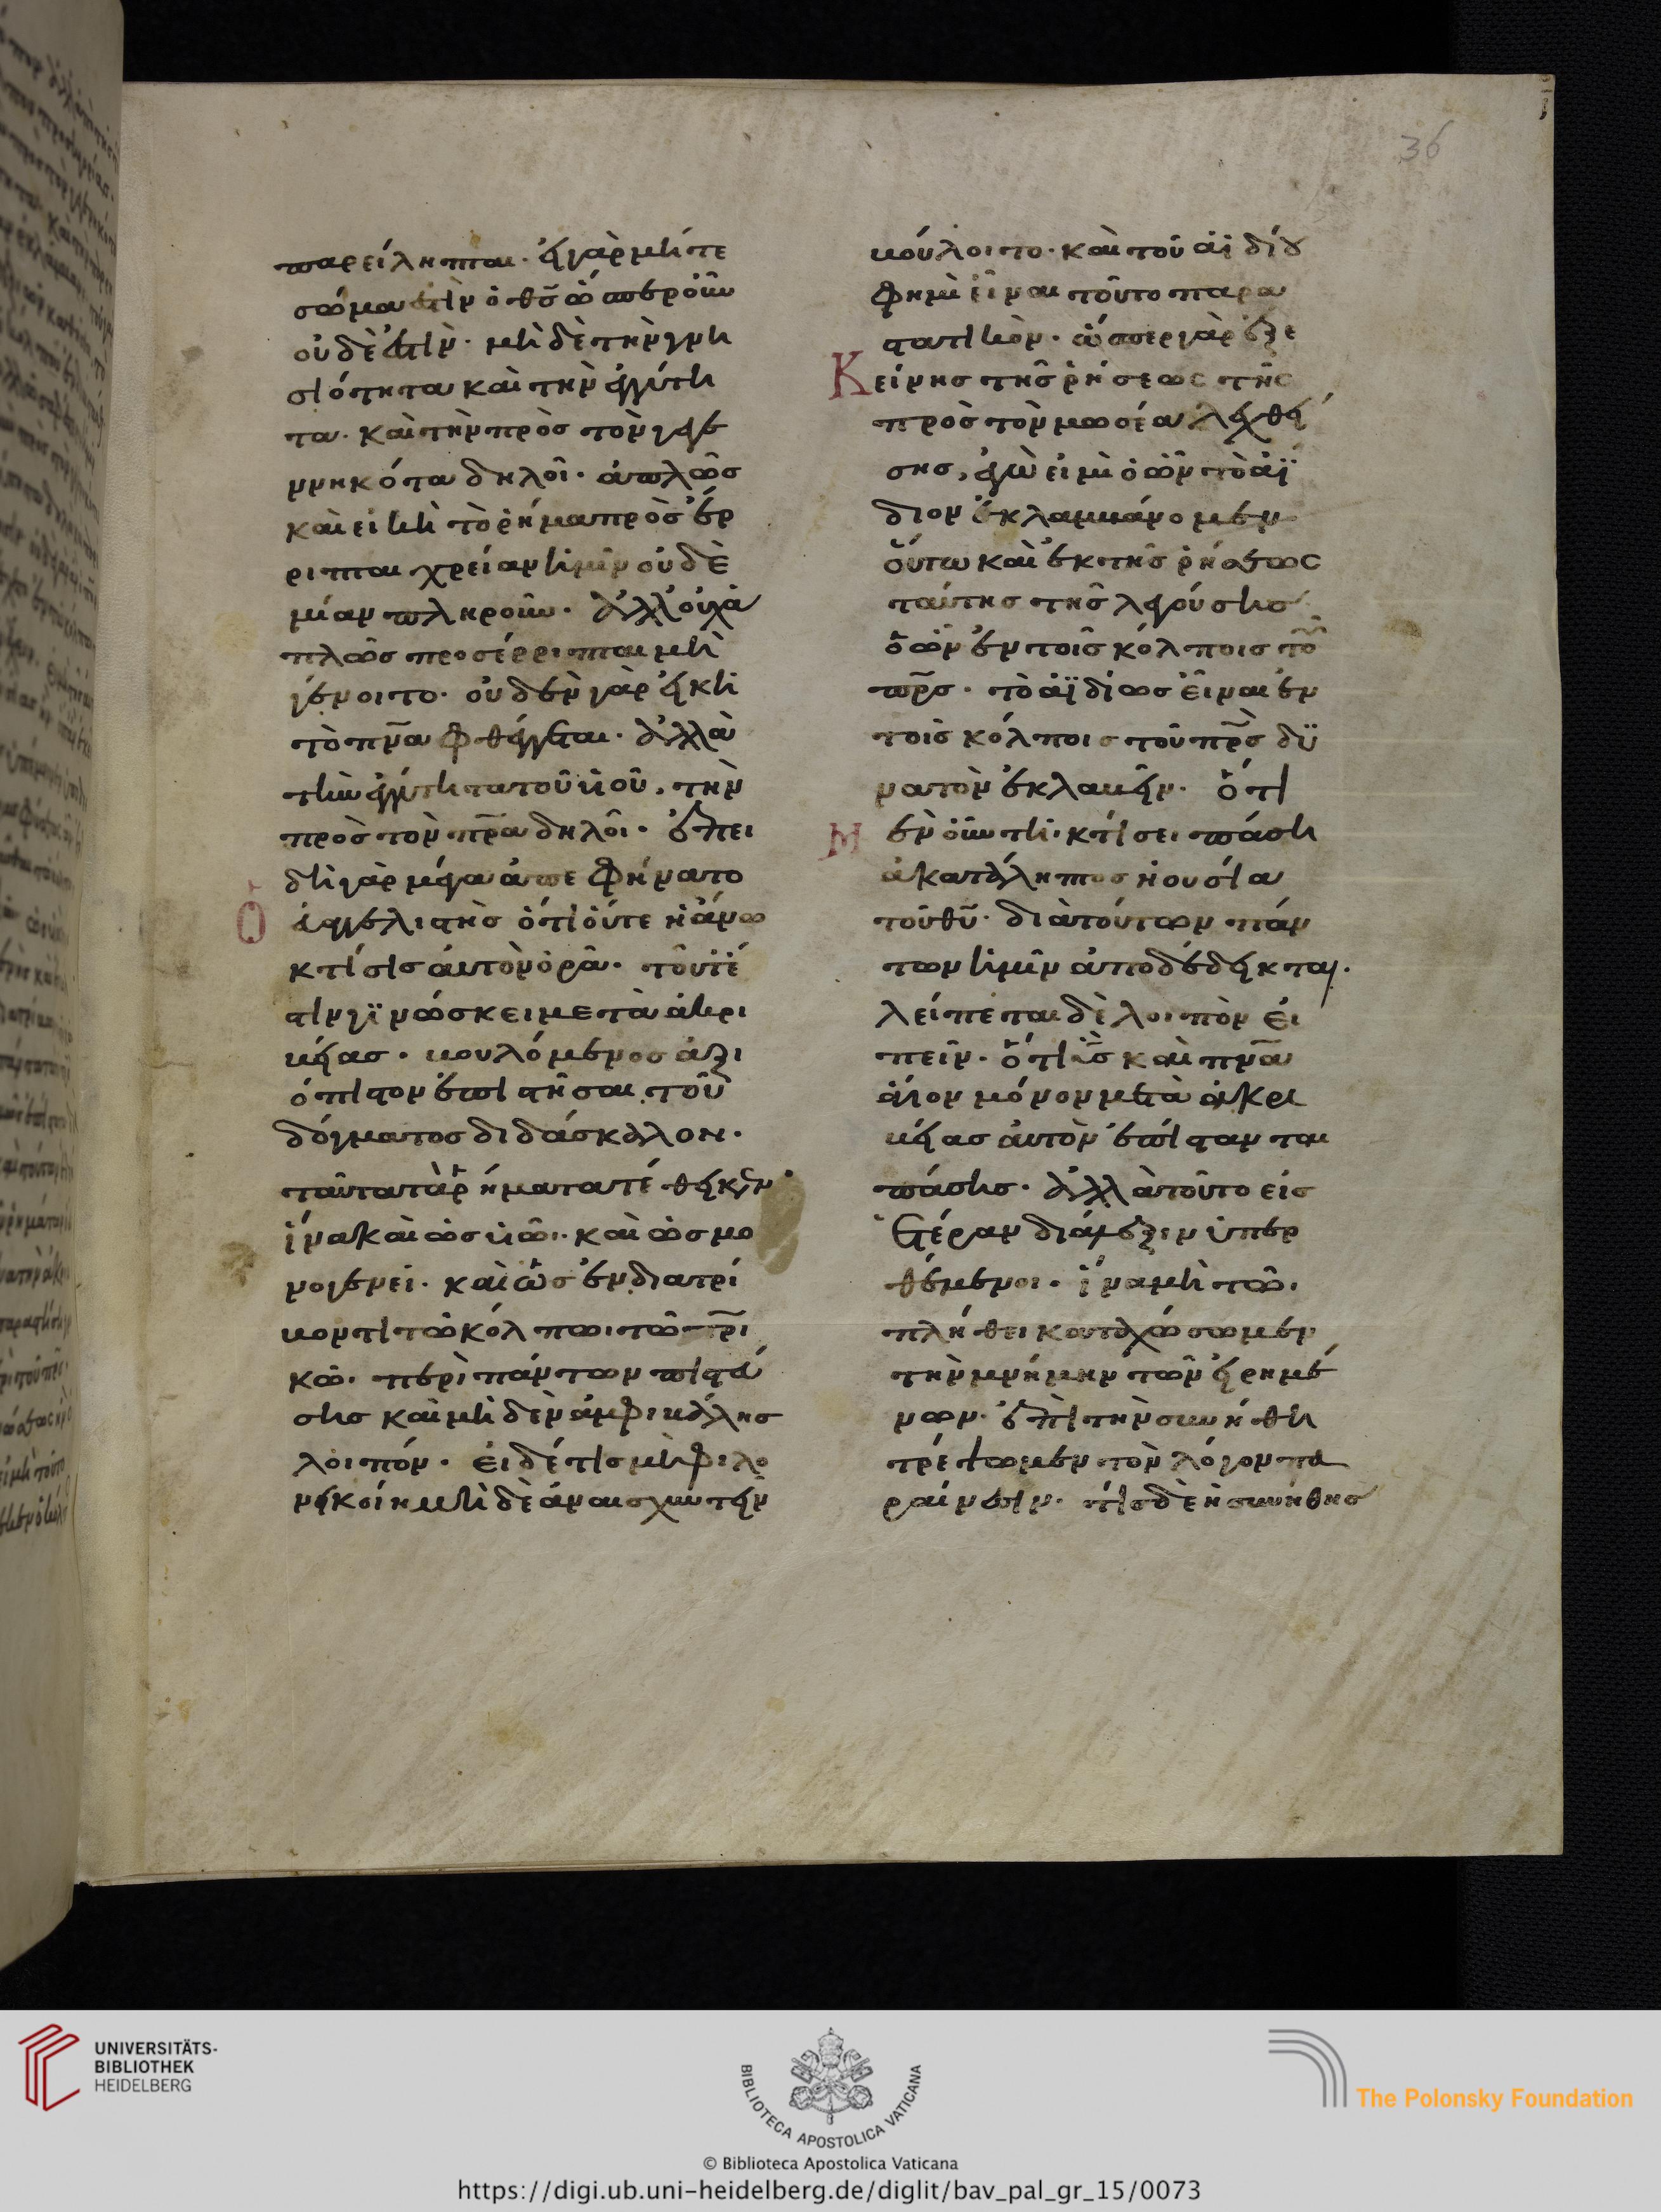 36
παρείληπται· εἰ γὰρ μήτε
σῶμά ἐστιν ὁ θς̄ ὥσπερ οὖν
οὐδὲ ἔστιν· μὴ δὲ τὴν γνη
σιότητα καὶ τὴν ἐγγύτη
τα· καὶ τὴν πρὸς τὸν γεγε
ννηκότα δηλοῖ· ἁπλῶς
καὶ εἰκῆ τὸ ῥῆμα προσέρ
ριπται χρείαν ἡμῖν οὐδε
μίαν πληροῦν· ἀλλ' οὐχ ἁ
πλῶς προσέρριπται μὴ
γένοιτο· οὐδὲν γὰρ εἰκῆ
τὸ πνᾱ φθέγγεται· ἀλλὰ
τὴν ἐγγύτητα τοῦ υἱοῦ, τὴν
πρὸς τὸν πρᾱ δηλοῖ· ἐπει
δὴ γὰρ μέγα ἀπεφήνατο
ὁ εὐαγγελιστὴς ὅτι οὔτε ἡ ἄνω
κτίσις αὐτὸν ὁρᾶ· τουτέ
στιν γϊνώσκει μετὰ ἀκρι
βείας· βουλόμενος ἀξι
όπιστον ἐπιστῆσαι τοῦ
δόγματος διδάσκαλον·
ταῦτα τὰ ῥήματα τέθεικεν·
ἵνα καὶ ὡς υἱῶι· καὶ ὡς μο
νογενεῖ· καὶ ὡς ἐνδιατρί
βοντι τῶ κόλπωι τῶ πρι
κῶ· περὶ πάντων πιστεύ
σης καὶ μηδὲν ἀμφιβάλης
λοιπόν· εἰ δέ τις μὴ φιλο
νεικοίη μὴ δὲ ἀναισχυντεῖν
βούλοιτο· καὶ τοῦ αἰδίου
φημὶ εἶναι τοῦτο παρα
στατικόν· ὥσπερ γὰρ ἐξ ἐ
Κείνης τῆς ῥήσεως τῆς
πρὸς τὸν μωσέα λεχθεί
σης, ἐγὼ εἰμὶ ὁ ὢν τὸ ἀΐ
διον ἐκλαμβάνομεν
οὕτω καὶ ἐκ τῆς ῥήσεως
ταύτης τῆς λεγούσης
ὁ ὢν ἐν τοῖς κόλποις τοῦ
πρ̄ς· τὸ ἀϊδίως εἶναι ἐν
τοῖς κόλποις τοῦ πρ̄ς δυ
νατὸν ἐκλαβεῖν· ὅτι
Μὲν οὖν τῆ κτίσει πάση
ἀκατάληπτος ἡ οὐσία
τοῦ θῡ· διὰ τούτων πάν
των ἡμῖν ἀποδέδεικται·
λείπεται δὲ λοιπὸν εἰ
πεῖν· ὅτι υἱς̄ καὶ πνᾱ
ἅγιον μόνον μετὰ ἀκρι
βείας αὐτὸν ἐπίστανται
πάσης· ἀλλὰ τοῦτο εἰς
ἑτέραν διάλεξιν ὑπερ
θέμενοι· ἵνα μὴ τῶι
πλήθει καταχώσωμεν
τὴν μνήμην τῶν εἰρημέ
νων· ἐπὶ τὴν συνήθη
τρέψωμεν τὸν λόγον πα
ραίνεσιν· τίς δὲ ἡ συνήθης
UNIVERSITÄTS-
BIBLIOTHEK
HEIDELBERG
BIBLIOTECA APOSTOLICA VATICANA
The Polonsky Foundation
© Biblioteca Apostolica Vaticana
https://digi.ub.uni-heidelberg.de/diglit/bav_pal_gr_15/0073